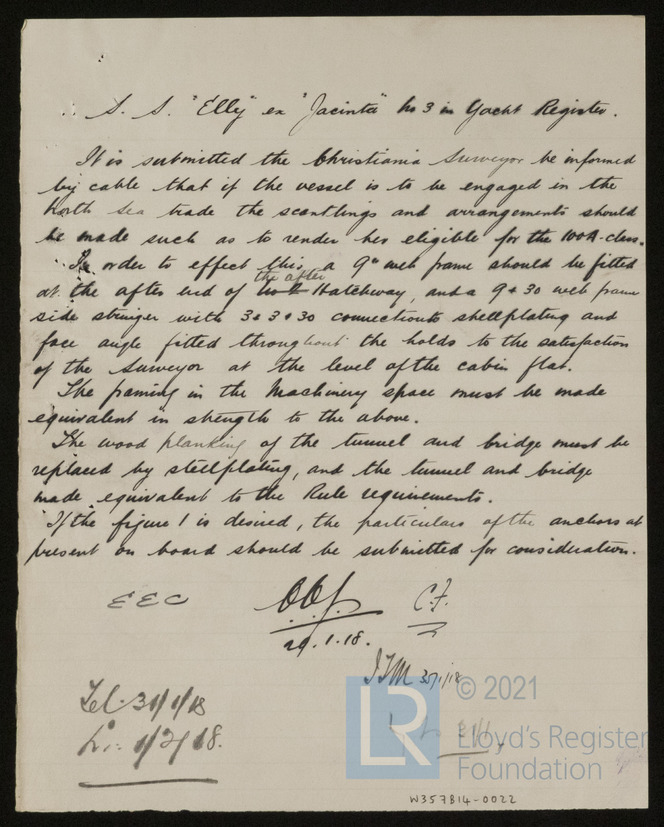 S. S. "Elly" ex "Jacinta" No 3 in Yacht Register.
It is submitted the Christiania Surveyor be informed
by cable that if the vessel is to be engaged in the
North Sea trade the scantlings and arrangements should
be made such as to render her eligible for the 100A-class.
In order to effect this, a 9" web frame should be fitted
the after
at the after end of No 2 Hatchway, and a 9 x 30 web frame
side stringer with 3 x 3 x 30 connection to shellplating and
face angle fitted throughout the holds to the satisfaction
of the Surveyor at the level of the cabin flat.
The framing in the Machinery space must be made
equivalent in strength to the above.
The wood planking of the tunnel and bridge must be
replaced by steelplating, and the tunnel and bridge
made equivalent to the Rule requirements.
If the figure 1 is desired, the particulars of the anchors at
present on board should be submitted for consideration.
EEC
C.F.
29.1.18.
Tel. 31/1/18
1/2/18.
LR
© 2021
Lloyd's Register
Foundation
W357814-0022